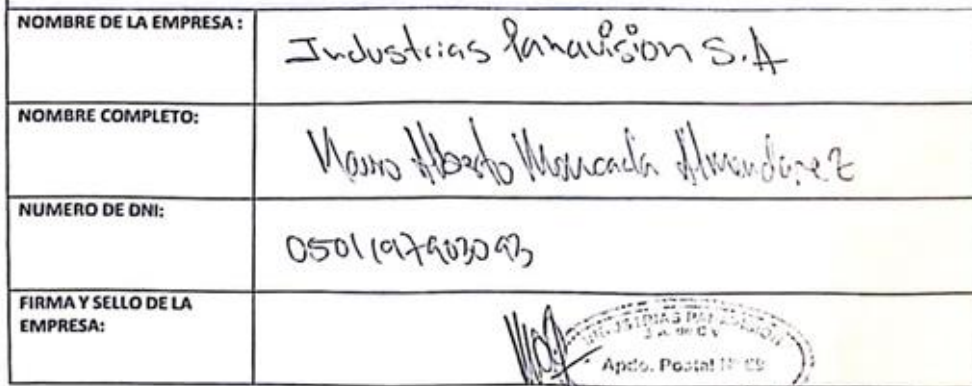 NOMBRE DE LA EMPRESA :
Industrias Panavision S.A
NOMBRE COMPLETO:
Mauro Alberto Moncada Almendarez
NUMERO DE DNI:
FIRMA Y SELLO DE LA
EMPRESA:
INDUSTRIAS PANAVISION
S.A. de C.V.
Apdo. Postal Nº